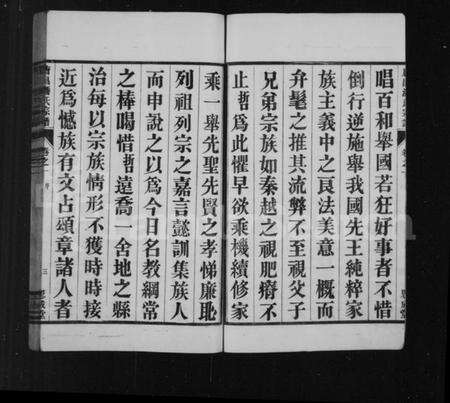 唱百和舉國若狂好事者不惜
倒行逆施舉我國先王純粹家
族主義中之良法美意一概而
弁髦之推其流弊不至視父子
兄弟宗族如秦越之視肥瘠不
止哲爲此懼早欲乘機續修家
乘一舉先聖先賢之孝悌廉恥
列祖列宗之嘉言懿訓集族人
而申說之以爲今日名教綱常
之棒喝惜哲遠喬一舍地之縣
治每以宗族情形不獲時時接
近爲憾族有文占頌章諸人者
三